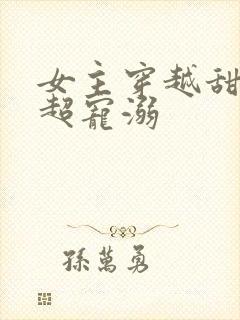 女主穿越甜
超寵溺
孫萬勇